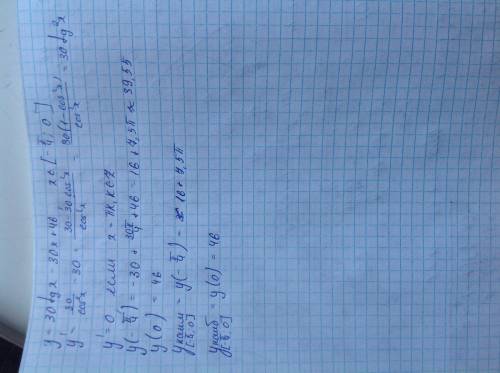 y = 30 tg x - 30x + 46   x ∈ [-π/4; 0]
y' = 30/cos²x - 30 = (30 - 30 cos²x)/cos²x = 30(1 - cos²x)/cos²x = 30 tg²x
y' = 0 если x = πk, k ∈ Z
y(-π/4) = -30 + 30π/4 + 46 = 16 + 7,5π ≈ 39,55
y(0) = 46
y наим [-π/4; 0] = y(-π/4) = 16 + 7,5π
y наиб [-π/4; 0] = y(0) = 46